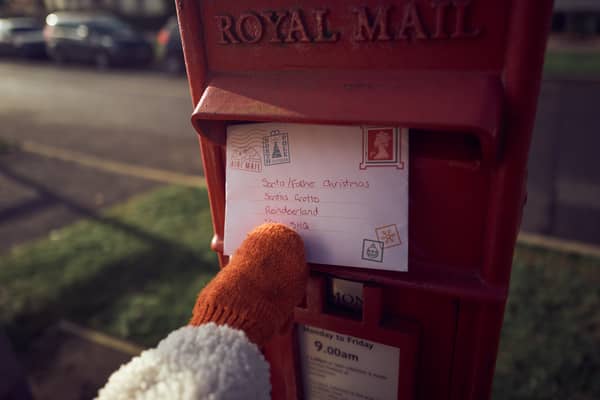 ROYAL MAIL
AIR MAIL
Santa/Father Christmas
Santa's Grotto
Reindeerland
5HQ
MON
Monday to Friday
9.00am